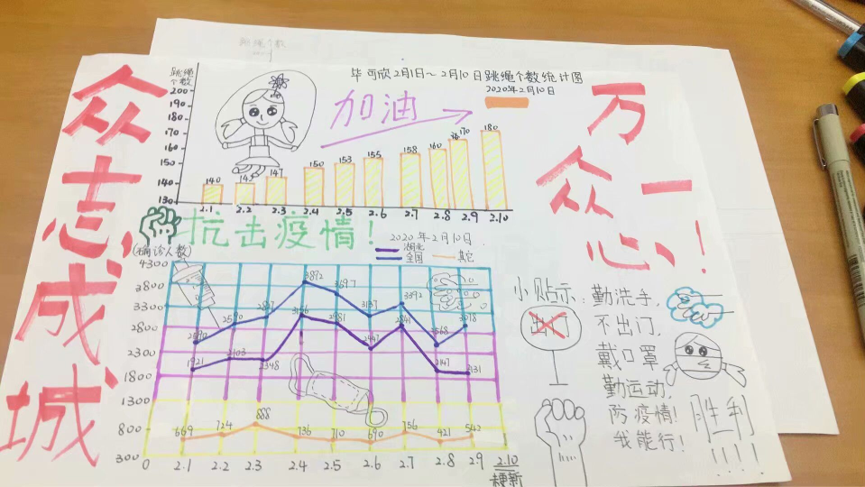 跳绳个数
毕可欣2月1日～2月10日跳绳个数统计图
2020年2月10日
跳绳
个数
200
190
180
170
160
150
140
130
140
145
147
150
153
155
158
160
170
180
2.1 2.2 2.3 2.4 2.5 2.6 2.7 2.8 2.9 2.10
加油
众志成城
万众一心、!
抗击疫情!
2020年2月10日
湖北
全国
其它
(确诊人数)
4300
3800
3300
2800
2300
1800
1300
800
300
2590
3872
3697
3392
1921
2103
2348
2131
669
724
888
736
710
690
756
421
542
0 2.1 2.2 2.3 2.4 2.5 2.6 2.7 2.8 2.9 2.10
小贴示:勤洗手,
不出门,
戴口罩
勤运动,
防疫情!
我能行!
出门
胜利
!!!!